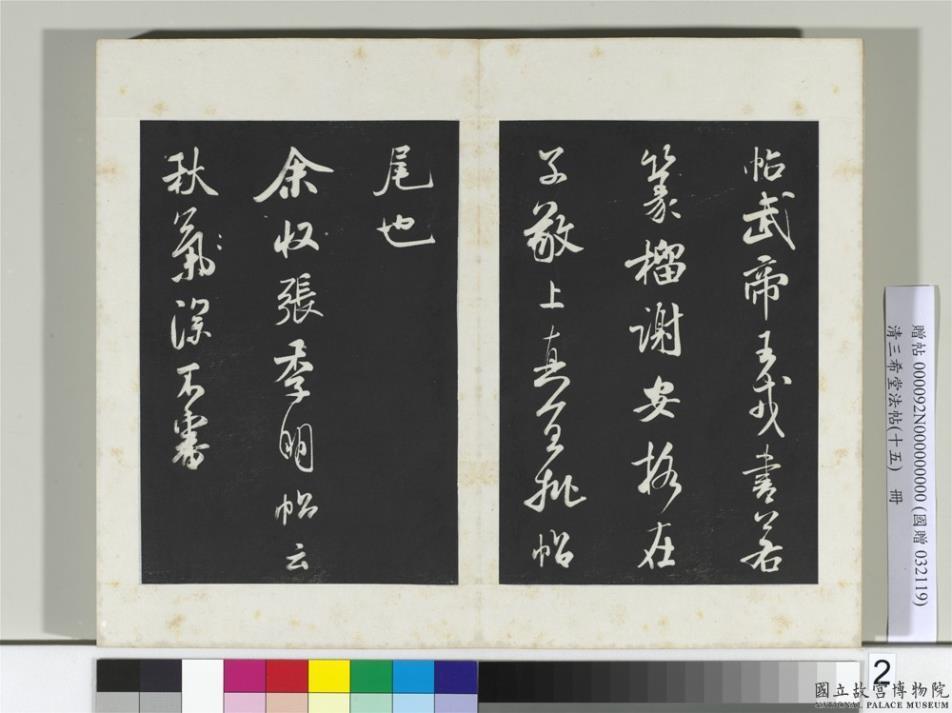 帖武帝王戎書若
篆籀謝安格在
子敬上真宜批帖
尾也
余收張季明帖云
秋氣深不審
贈帖 000092N000000000 (國贈 032119)
清三希堂法帖(十五) 冊
2
國立故宮博物院
NATIONAL PALACE MUSEUM